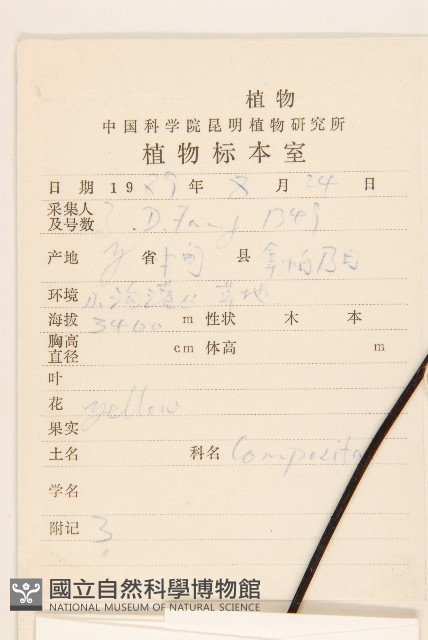 植物
中国科学院昆明植物研究所
植物标本室
日 期 1989 年 8 月 24 日
采集人
及号数 . D. Fang 1349
产地 省 中甸 县
环境 草地
海拔 3400 m 性状 木 本
胸高
直径 cm 体高 m
叶
花 yellow
果实
土名 科名 Compositae
学名
附记 3
國立自然科學博物館
NATIONAL MUSEUM OF NATURAL SCIENCE